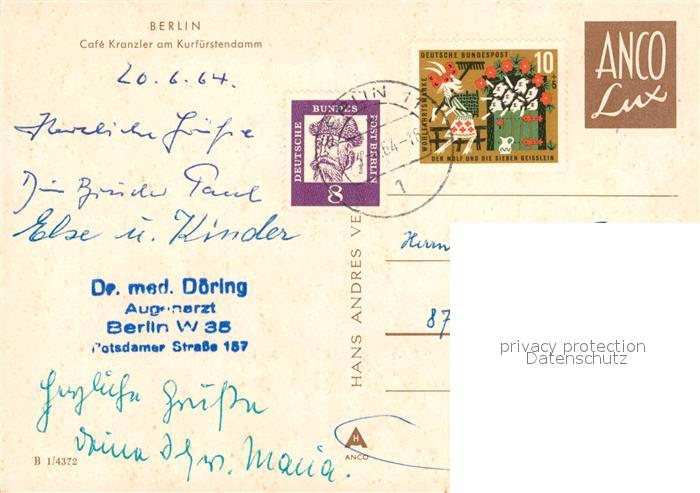 BERLIN
Café Kranzler am Kurfürstendamm
20.6.64.
Herzliche Grüße
Dein Bruder Paul
Else u. Kinder
Dr. med. Döring
Augenarzt
Berlin W 35
Potsdamer Straße 157
Herzliche Grüße
Deine Schw. Maria.
B 1/4372
DEUTSCHE
BUNDES
POST BERLIN
8
DEUTSCHE BUNDESPOST
10
+5
WOHLFAHRTSMARKE
DER WOLF UND DIE SIEBEN GEISSLEIN
1
ANCO
Lux
HANS ANDRES VE
Herrn
87
H
ANCO
privacy protection
Datenschutz